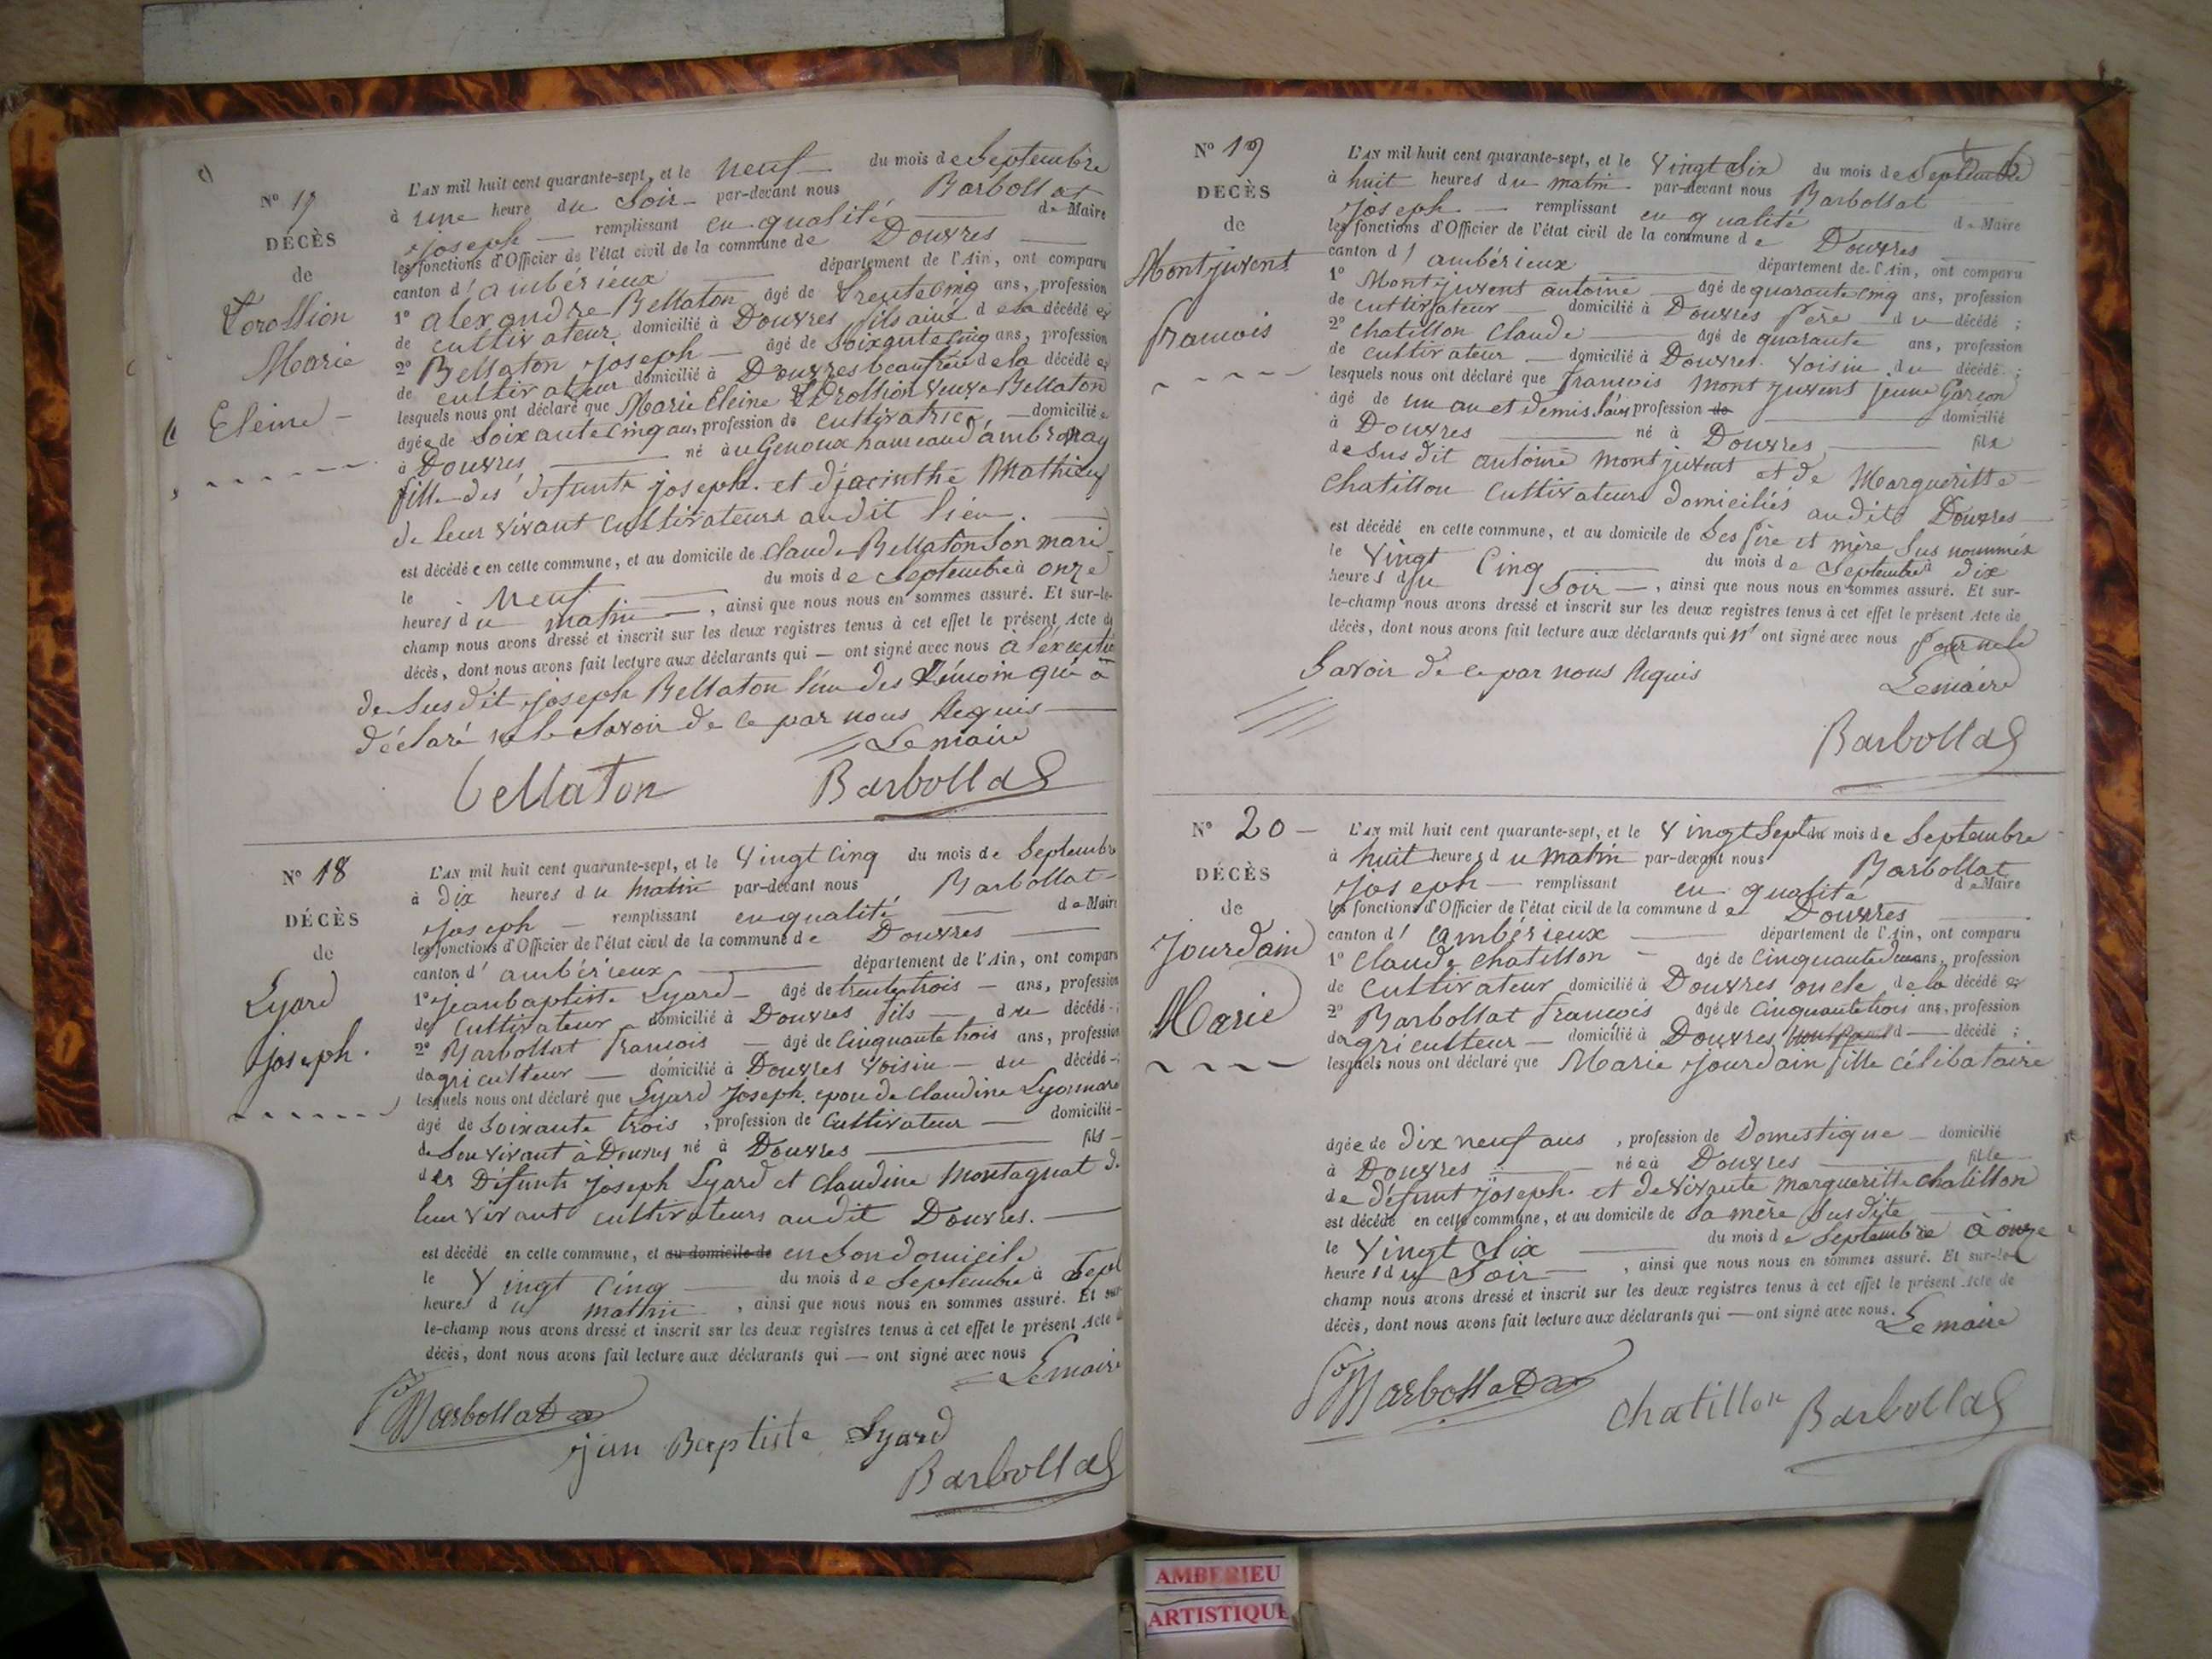 N° 17
DÉCÈS
de
Marie
Eleine -
L'AN mil huit cent quarante-sept, et le neuf du mois de Septembre
à une heure du Soir par-devant nous Barbollat
joseph remplissant en qualité de Maire
les fonctions d'Officier de l'état civil de la commune de Douvres
canton d'ambérieux département de l'Ain, ont comparu
1° alexandre Bellaton âgé de trente cinq ans, profession
de cultivateur domicilié à Douvres fils ainé de la décédé e
2° Bellaton joseph âgé de Soixante cinq ans, profession
de cultivateur domicilié à Douvres beaufrère de la décédé e
lesquels nous ont déclaré que Marie Eleine veuve Bellaton
âgée de Soixante cinq an, profession de cultivatrice domicilié e
à Douvres né au Genoux hameau d'ambronay
fille des défunts joseph et d'jacinthe Mathieu
de leur vivant cultivateurs audit lieu.
est décédé e en cette commune, et au domicile de claude Bellaton Son mari
le Neuf du mois de Septembre à onze
heures du matin, ainsi que nous nous en sommes assuré. Et sur-le-
champ nous avons dressé et inscrit sur les deux registres tenus à cet effet le présent Acte de
décès, dont nous avons fait lecture aux déclarants qui — ont signé avec nous à l'exeptio
de Susdit joseph Bellaton l'un des témoin qui a
déclaré ne le Savoir de ce par nous Requis
Lemaire
bellaton Barbollat
N° 18
DÉCÈS
de
Lyard
joseph.
L'AN mil huit cent quarante-sept, et le Vingt cinq du mois de Septembre
à dix heures du matin par-devant nous Barbollat
joseph remplissant en qualité de Maire
les fonctions d'Officier de l'état civil de la commune de Douvres
canton d'ambérieux département de l'Ain, ont comparu
1° jeanbaptiste Lyard âgé de trente trois ans, profession
de Cultivateur domicilié à Douvres fils du décédé ;
2° Barbollat francois âgé de cinquante trois ans, profession
dagriculteur domicilié à Douvres voisin du décédé ;
lesquels nous ont déclaré que Lyard joseph. epou de claudine Lyonnard
âgé de Soixante trois, profession de Cultivateur domicilié
de Son vivant à Douvres né à Douvres fils
des Défunts joseph Lyard et Claudine Montagnat de
leur vivant cultivateurs audit Douvres.
est décédé en cette commune, et au domicile de en Son domicile
le Vingt cinq du mois de Septembre à Sept
heures du matin, ainsi que nous nous en sommes assuré. Et sur-
le-champ nous avons dressé et inscrit sur les deux registres tenus à cet effet le présent Acte de
décès, dont nous avons fait lecture aux déclarants qui — ont signé avec nous
Lemaire
Barbollat
jean Baptiste Lyard
Barbollat
N° 19
DÉCÈS
de
Montjuvent
francois
L'AN mil huit cent quarante-sept, et le Vingt Six du mois de Septembre
à huit heures du matin par-devant nous Barbollat
joseph remplissant en qualité de Maire
les fonctions d'Officier de l'état civil de la commune de Douvres
canton d'ambérieux département de l'Ain, ont comparu
1° Montjuvent antoine âgé de quarante cinq ans, profession
de cultivateur domicilié à Douvres Père du décédé ;
2° chatillon claude âgé de quarante ans, profession
de cultivateur domicilié à Douvres. voisin du décédé ;
lesquels nous ont déclaré que francois Montjuvent jeune Garcon
âgé de un an et demis Sans profession de domicilié
à Douvres né à Douvres fils
de Susdit antoine montjuvent et de Margueritte
chatillon cultivateurs domiciliés audits Douvres
est décédé en cette commune, et au domicile de Ses père et mère Sus nommés
le Vingt Cinq du mois de Septembre à dix
heures du Soir, ainsi que nous nous en sommes assuré. Et sur-
le-champ nous avons dressé et inscrit sur les deux registres tenus à cet effet le présent Acte de
décès, dont nous avons fait lecture aux déclarants qui n'ont signé avec nous Pour ne le
Savoir de ce par nous Requis
Lemaire
Barbollat
N° 20
DÉCÈS
de
Jourdain
Marie
L'AN mil huit cent quarante-sept, et le Vingt Sept du mois de Septembre
à huit heures du matin par-devant nous Barbollat
joseph remplissant en qualité de Maire
les fonctions d'Officier de l'état civil de la commune de Douvres
canton d'ambérieux département de l'Ain, ont comparu
1° Claude chatillon âgé de cinquante deux ans, profession
de cultivateur domicilié à Douvres oncle de la décédé e
2° Barbollat francois âgé de Cinquante trois ans, profession
dagriculteur domicilié à Douvres d décédé ;
lesquels nous ont déclaré que Marie jourdain fille célibataire
âgée de dix neuf ans, profession de Domestique domicilié
à Douvres née à Douvres fille
de défunt joseph. et de vivante margueritte chatillon
est décédé en cette commune, et au domicile de Sa mère Susdite
le Vingt Six du mois de Septembre à onze
heures du Soir, ainsi que nous nous en sommes assuré. Et sur-le-
champ nous avons dressé et inscrit sur les deux registres tenus à cet effet le présent Acte de
décès, dont nous avons fait lecture aux déclarants qui — ont signé avec nous.
Lemaire
Barbollat chatillon Barbollat
AMBERIEU
ARTISTIQUE